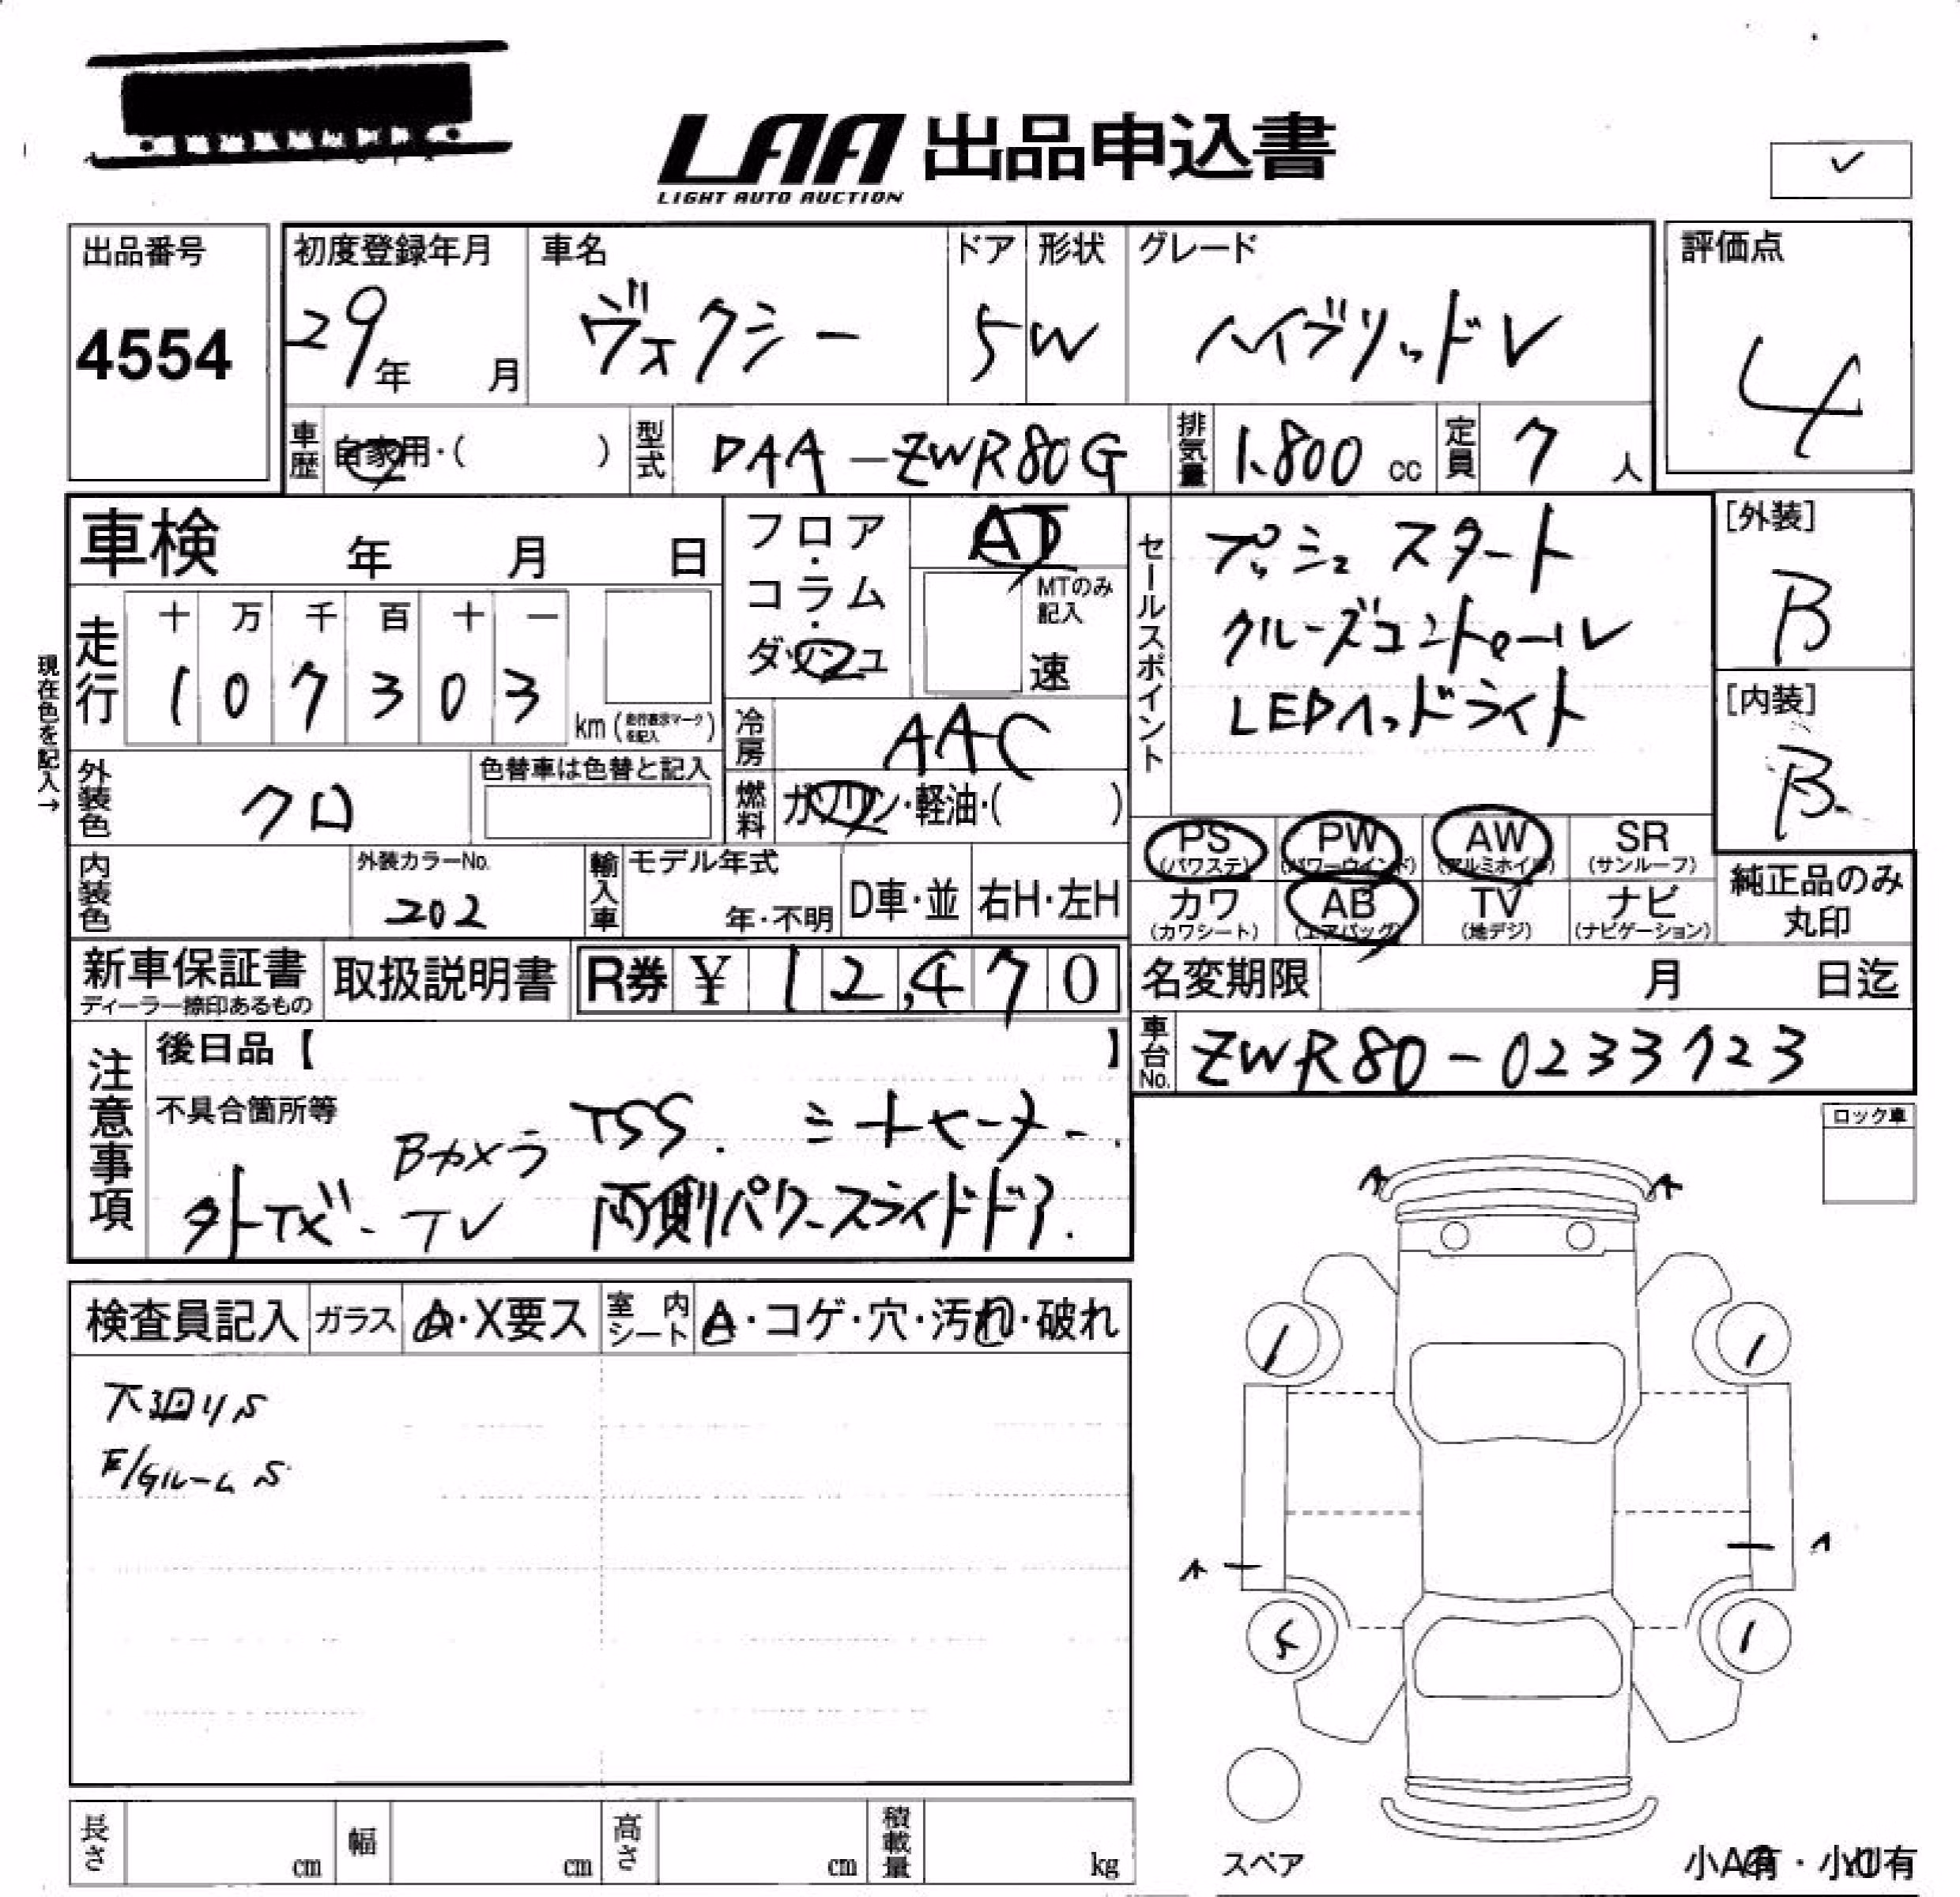 LAA 出品申込書
LIGHT AUTO AUCTION
✓
出品番号
4554
初度登録年月
29年 月
車名
ヴォクシー
ドア
5
形状
W
グレード
ハイブリッドV
評価点
4
車歴
自家用・( )
型式
DAA-ZWR80G
排気量
1.800 cc
定員
7 人
車検 年 月 日
フロア・コラム・ダッシュ
AT
MTのみ記入
速
セールスポイント
プッシュスタート
クルーズコントロール
LEDヘッドライト
[外装]
B
[内装]
B
現在色を記入→
走行
十 万 千 百 十 一
1 0 7 3 0 3
km (走行表示マークを記入)
冷房
AAC
燃料
ガソリン・軽油・( )
外装色
クロ
色替車は色替と記入
PS
(パワステ)
PW
(パワーウインド)
AW
(アルミホイル)
SR
(サンルーフ)
カワ
(カワシート)
AB
(エアバッグ)
TV
(地デジ)
ナビ
(ナビゲーション)
純正品のみ
丸印
内装色
外装カラーNo.
202
輸入車
モデル年式
年・不明
D車・並
右H・左H
新車保証書
ディーラー捺印あるもの
取扱説明書
R券 ¥ 12,470
名変期限 月 日迄
車台No.
ZWR80-0233723
注意事項
後日品【 】
不具合箇所等
TSS. シートヒーター.
Bカメラ
TV 両側パワースライドドア.
ロック車
検査員記入
ガラス
A・X要ス
室内シート
A・コゲ・穴・汚れ・破れ
下廻りS
E/Gルーム S
A
A
1
1
A
A
5
1
スペア
長さ cm
幅 cm
高さ cm
積載量 kg
小A有・小U有